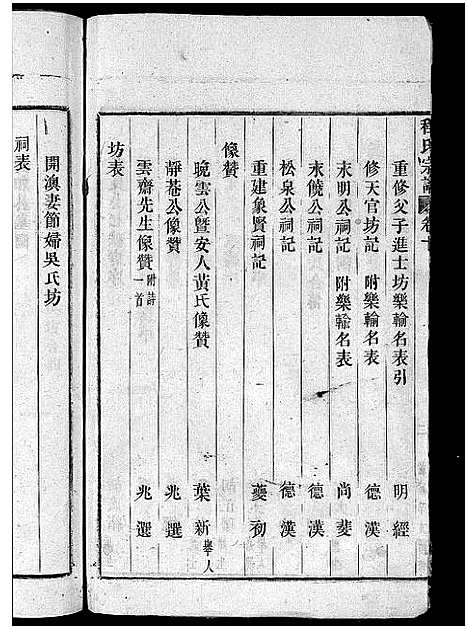 程氏宗譜 卷十
重修父子進士坊樂輸名表引 明經
修天官坊記 附樂輸名表 德漢
末明公祠記 附樂輸名表 尚斐
末饒公祠記 德漢
松泉公祠記 德漢
重建象賢祠記 夔初
像贊
晚雲公暨安人黃氏像贊 葉新 舉人
靜菴公像贊 兆選
雲齋先生像贊 附詩一首 兆選
坊表
開澳妻節婦吳氏坊
祠表